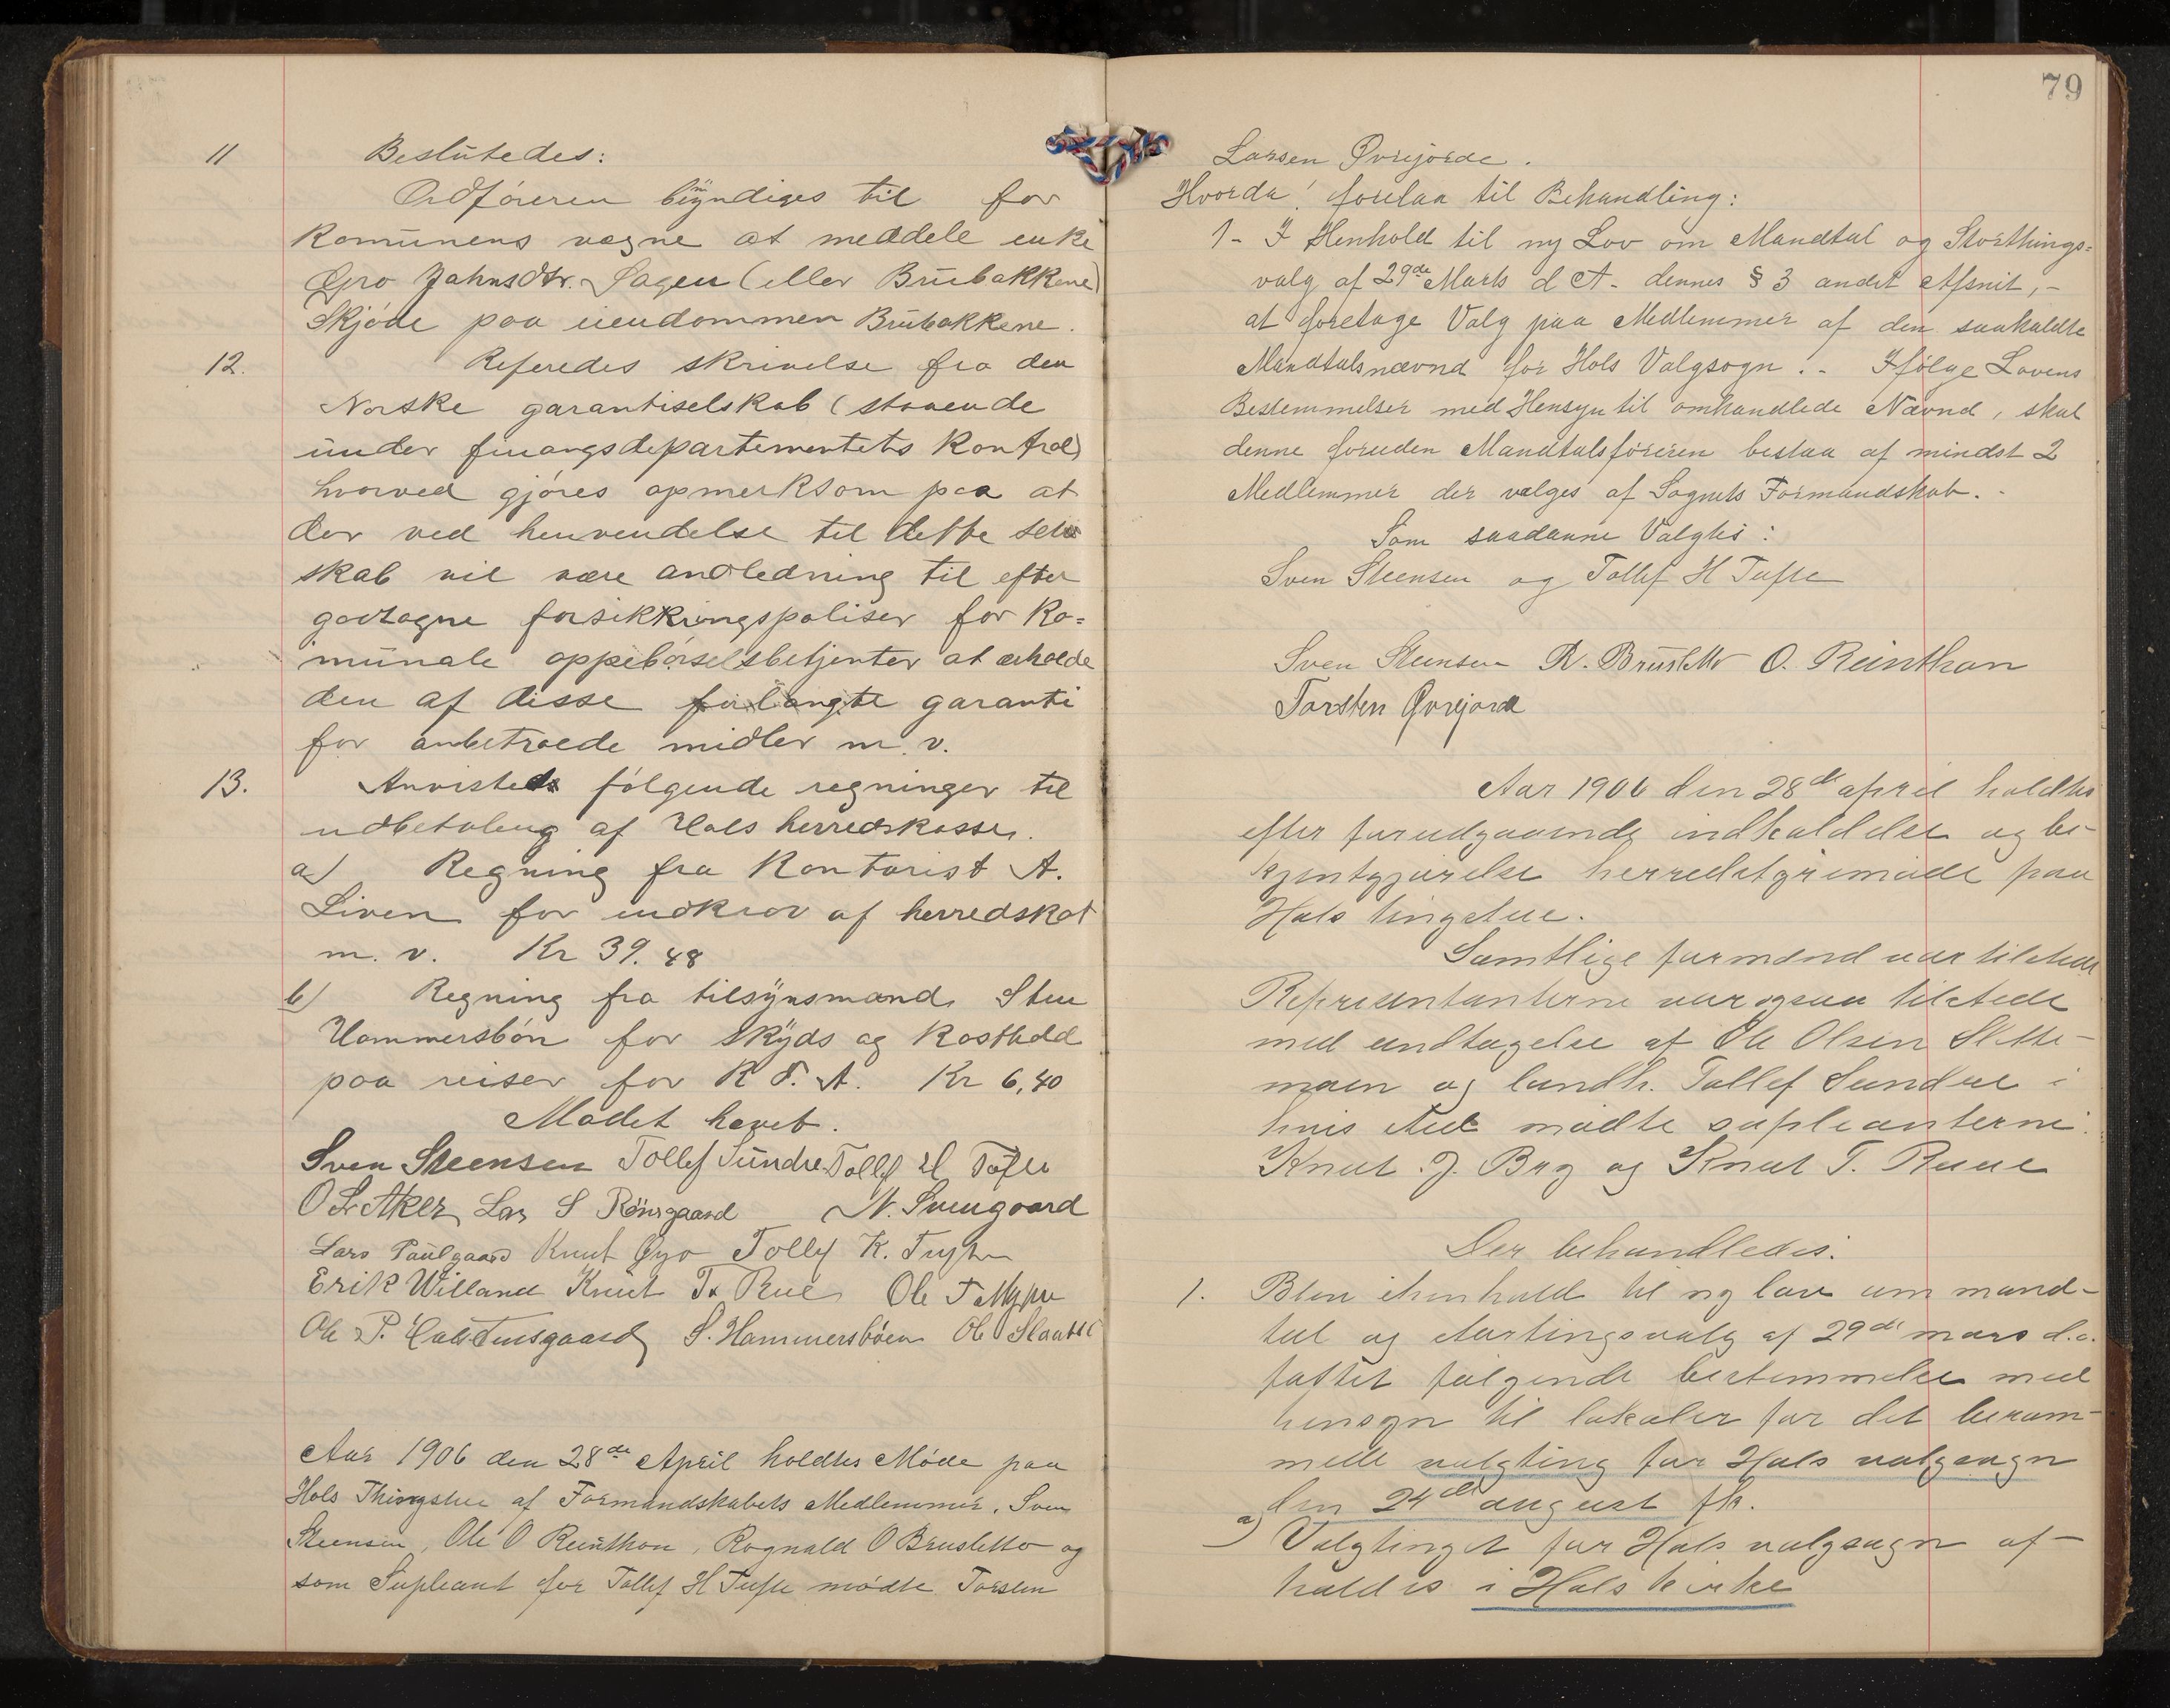 11 Beslutedes:
Ordføreren bemyndiges til for
Komunens vegne at meddele enke
Gro Jahnsdtr. Hagen (eller Brubakkene)
Skjøde paa eiendommen Brubakkene.
12. Referedes skrivelse fra den
Norske garantiselskab (staaende
under finangsdepartementets Kontrol)
hvorved gjøres opmerksom paa at
der ved henvendelse til dette sel
skab vil være andledning til efter
godtagne forsikkringspoliser for Ko=
munale oppebørselsbetjenter at erholde
den af disse forlangte garanti
for anbetroede midler m. v.
13. Anvistes følgende regninger til
udbetaling af Hols herredskasse.
a) Regning fra Kontorist A.
Liven for indkrav af herredskat
m. v. Kr 39.48
b) Regning fra tilsynsmand Sten
Hammersbøn for skyds og Kosthold
paa reiser for K F. A. Kr 6,40
Mødet hævet.
Sven Steensen Tollef Sundre Tollef H Tufte
O Sr Aker Lars S Rønsgaard N. Sveingaard
Lars Paulgaard Knut Øyo Tollef K. Tufte
Erik Willand Knut T. Rue Ole T Myhre
Ole P. S. Hammersbøen Ol Slaatte
Aar 1906 den 28de April holdtes Møde paa
Hols Thingstue af Formandskabets Medlemmer, Sven
Steensen, Ole O Reinthon, Rognald O Brusletto og
som Supleant for Tollef H Tufte mødte Torsten
79
Larsen Øvrejorde.
Hvorda! forelaa til Behandling:
1- I Henhold til ny Lov om Mandtal og Storthings=
valg af 29de Marts d A- dennes § 3 andet Afsnit,-
at foretage Valg paa Medlemmer af den saakaldte
Mandtalsnævnd for Hols Valgsogn.- Ifølge Lovens
Bestemmelser med Hensyn til omhandlede Nævnd, skal
denne foruden Mandtalsføreren bestaa af mindst 2
Medlemmer der vælges af Sognets Formandskab.-
Som saadanne Valgtes:
Sven Steensen og Tollef H Tufte
Sven Steensen R. Brusletto O. Reinthon
Torsten Øvrejorde
Aar 1906 den 28de april holdtes
efter forudgaaende indkaldelse og be-
kjentgjørelse herredstyremøde paa
Hols tingstue.
Samtlige formænd var tilstede
Repræsentanterne var ogsaa tilstede
med undtagelse af Ole Olsen Slette-
moen og landh. Tollef Sundre i
hvis sted mødte supleanterne:
Knut J. Bry og Knut T. Ruue
Der behandledes:
1. Blev i henhold til ny lov om mand-
tal og stortingsvalg af 29de mars d.a.
fattet følgende bestemmelse med
hensyn til lokaler for det beram-
mede valgting for Hols valgsogn
den 24de august fk.
a) Valgtinget for Hols valgsogn af-
holdes i Hols kirke